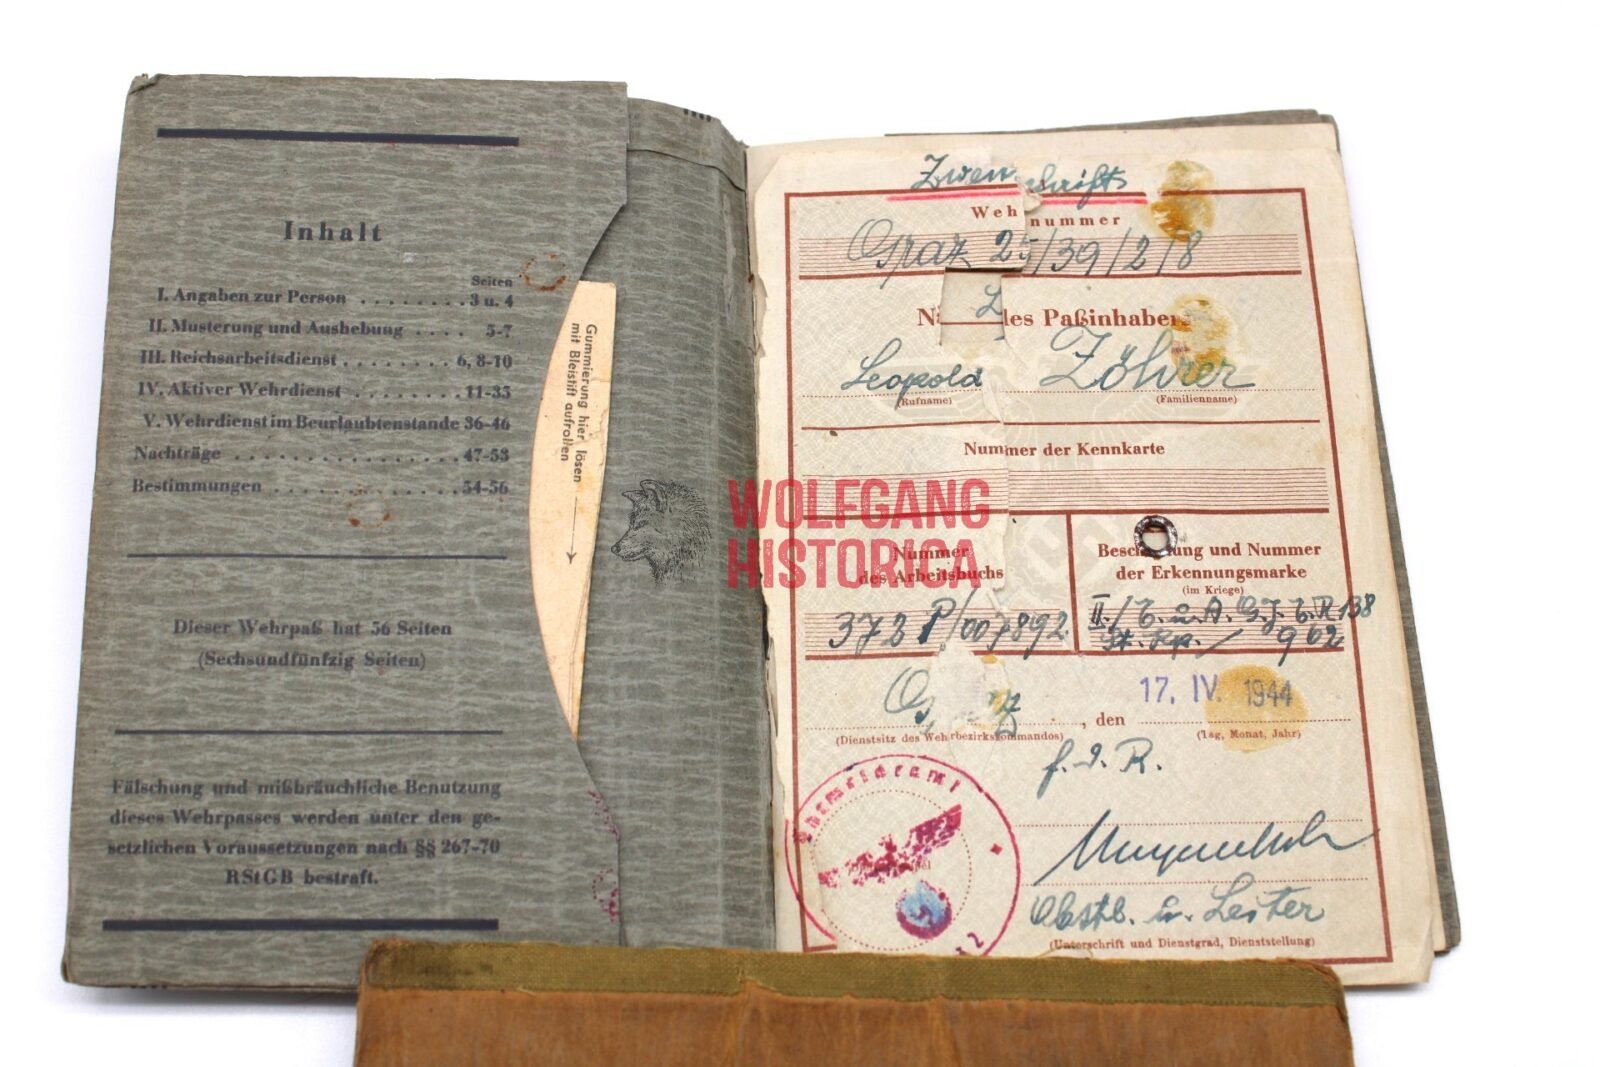 Inhalt
Seiten
I. Angaben zur Person . . . . . . . . 3 u. 4
II. Musterung und Aushebung . . . . 5-7
III. Reichsarbeitsdienst . . . . . . . . 6, 8-10
IV. Aktiver Wehrdienst . . . . . . . . 11-35
V. Wehrdienst im Beurlaubtenstande 36-46
Nachträge . . . . . . . . . . . . . . . . 47-53
Bestimmungen . . . . . . . . . . . . . 54-56
Dieser Wehrpaß hat 56 Seiten
(Sechsundfünfzig Seiten)
Fälschung und mißbräuchliche Benutzung
dieses Wehrpasses werden unter den ge-
setzlichen Voraussetzungen nach §§ 267-70
RStGB bestraft.
Gummierung hier lösen
mit Bleistift aufrollen
WOLFGANG
HISTORICA
Zweitschrift
Wehrnummer
Graz 25/39/2/8
des Paßinhabers
Leopold Zöhrer
(Rufname) (Familienname)
Nummer der Kennkarte
Nummer
des Arbeitsbuchs
372 P/007892
Beschriftung und Nummer
der Erkennungsmarke
(im Kriege)
138
962
Graz, den 17. IV. 1944
(Dienstsitz des Wehrbezirkskommandos) (Tag, Monat, Jahr)
f. d. R.
Obstlt. u. Leiter
(Unterschrift und Dienstgrad, Dienststellung)